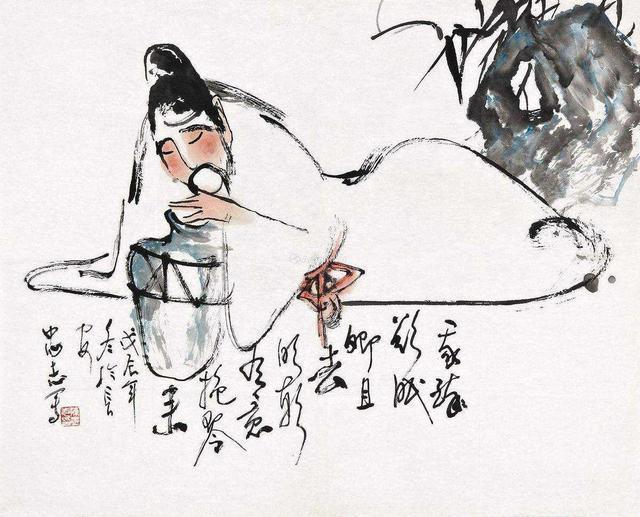 我醉
欲眠
卿且
去
明朝
有意
抱琴
来
戊辰年
冬於長
安
忠志写